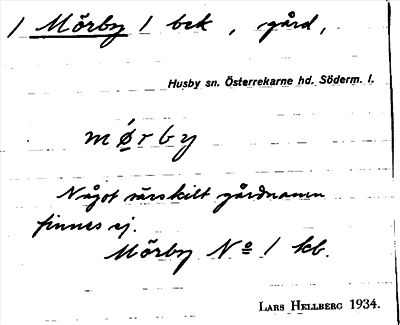 / Mörby / bek , gård,
Husby sn. Österrekarne hd. Söderm. l.
mǿrby
Något särskilt gårdnamn
finnes ej.
Mörby Nº 1 kb.
LARS HELLBERG 1934.